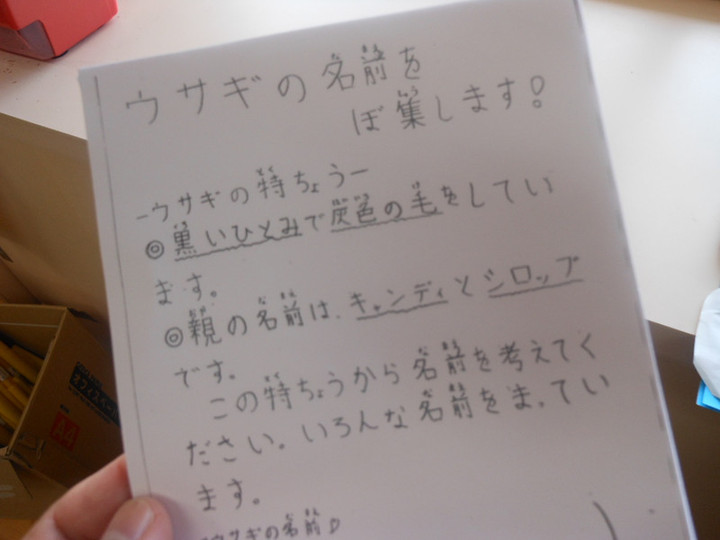 ウサギの名前を
ぼ集します!
-ウサギの特ちょうー
◎黒いひとみで灰色の毛をしてい
ます。
◎親の名前は、キャンディとシロップ
です。
この特ちょうから名前を考えてく
ださい。いろんな名前をまってい
ます。
ウサギの名前
A4